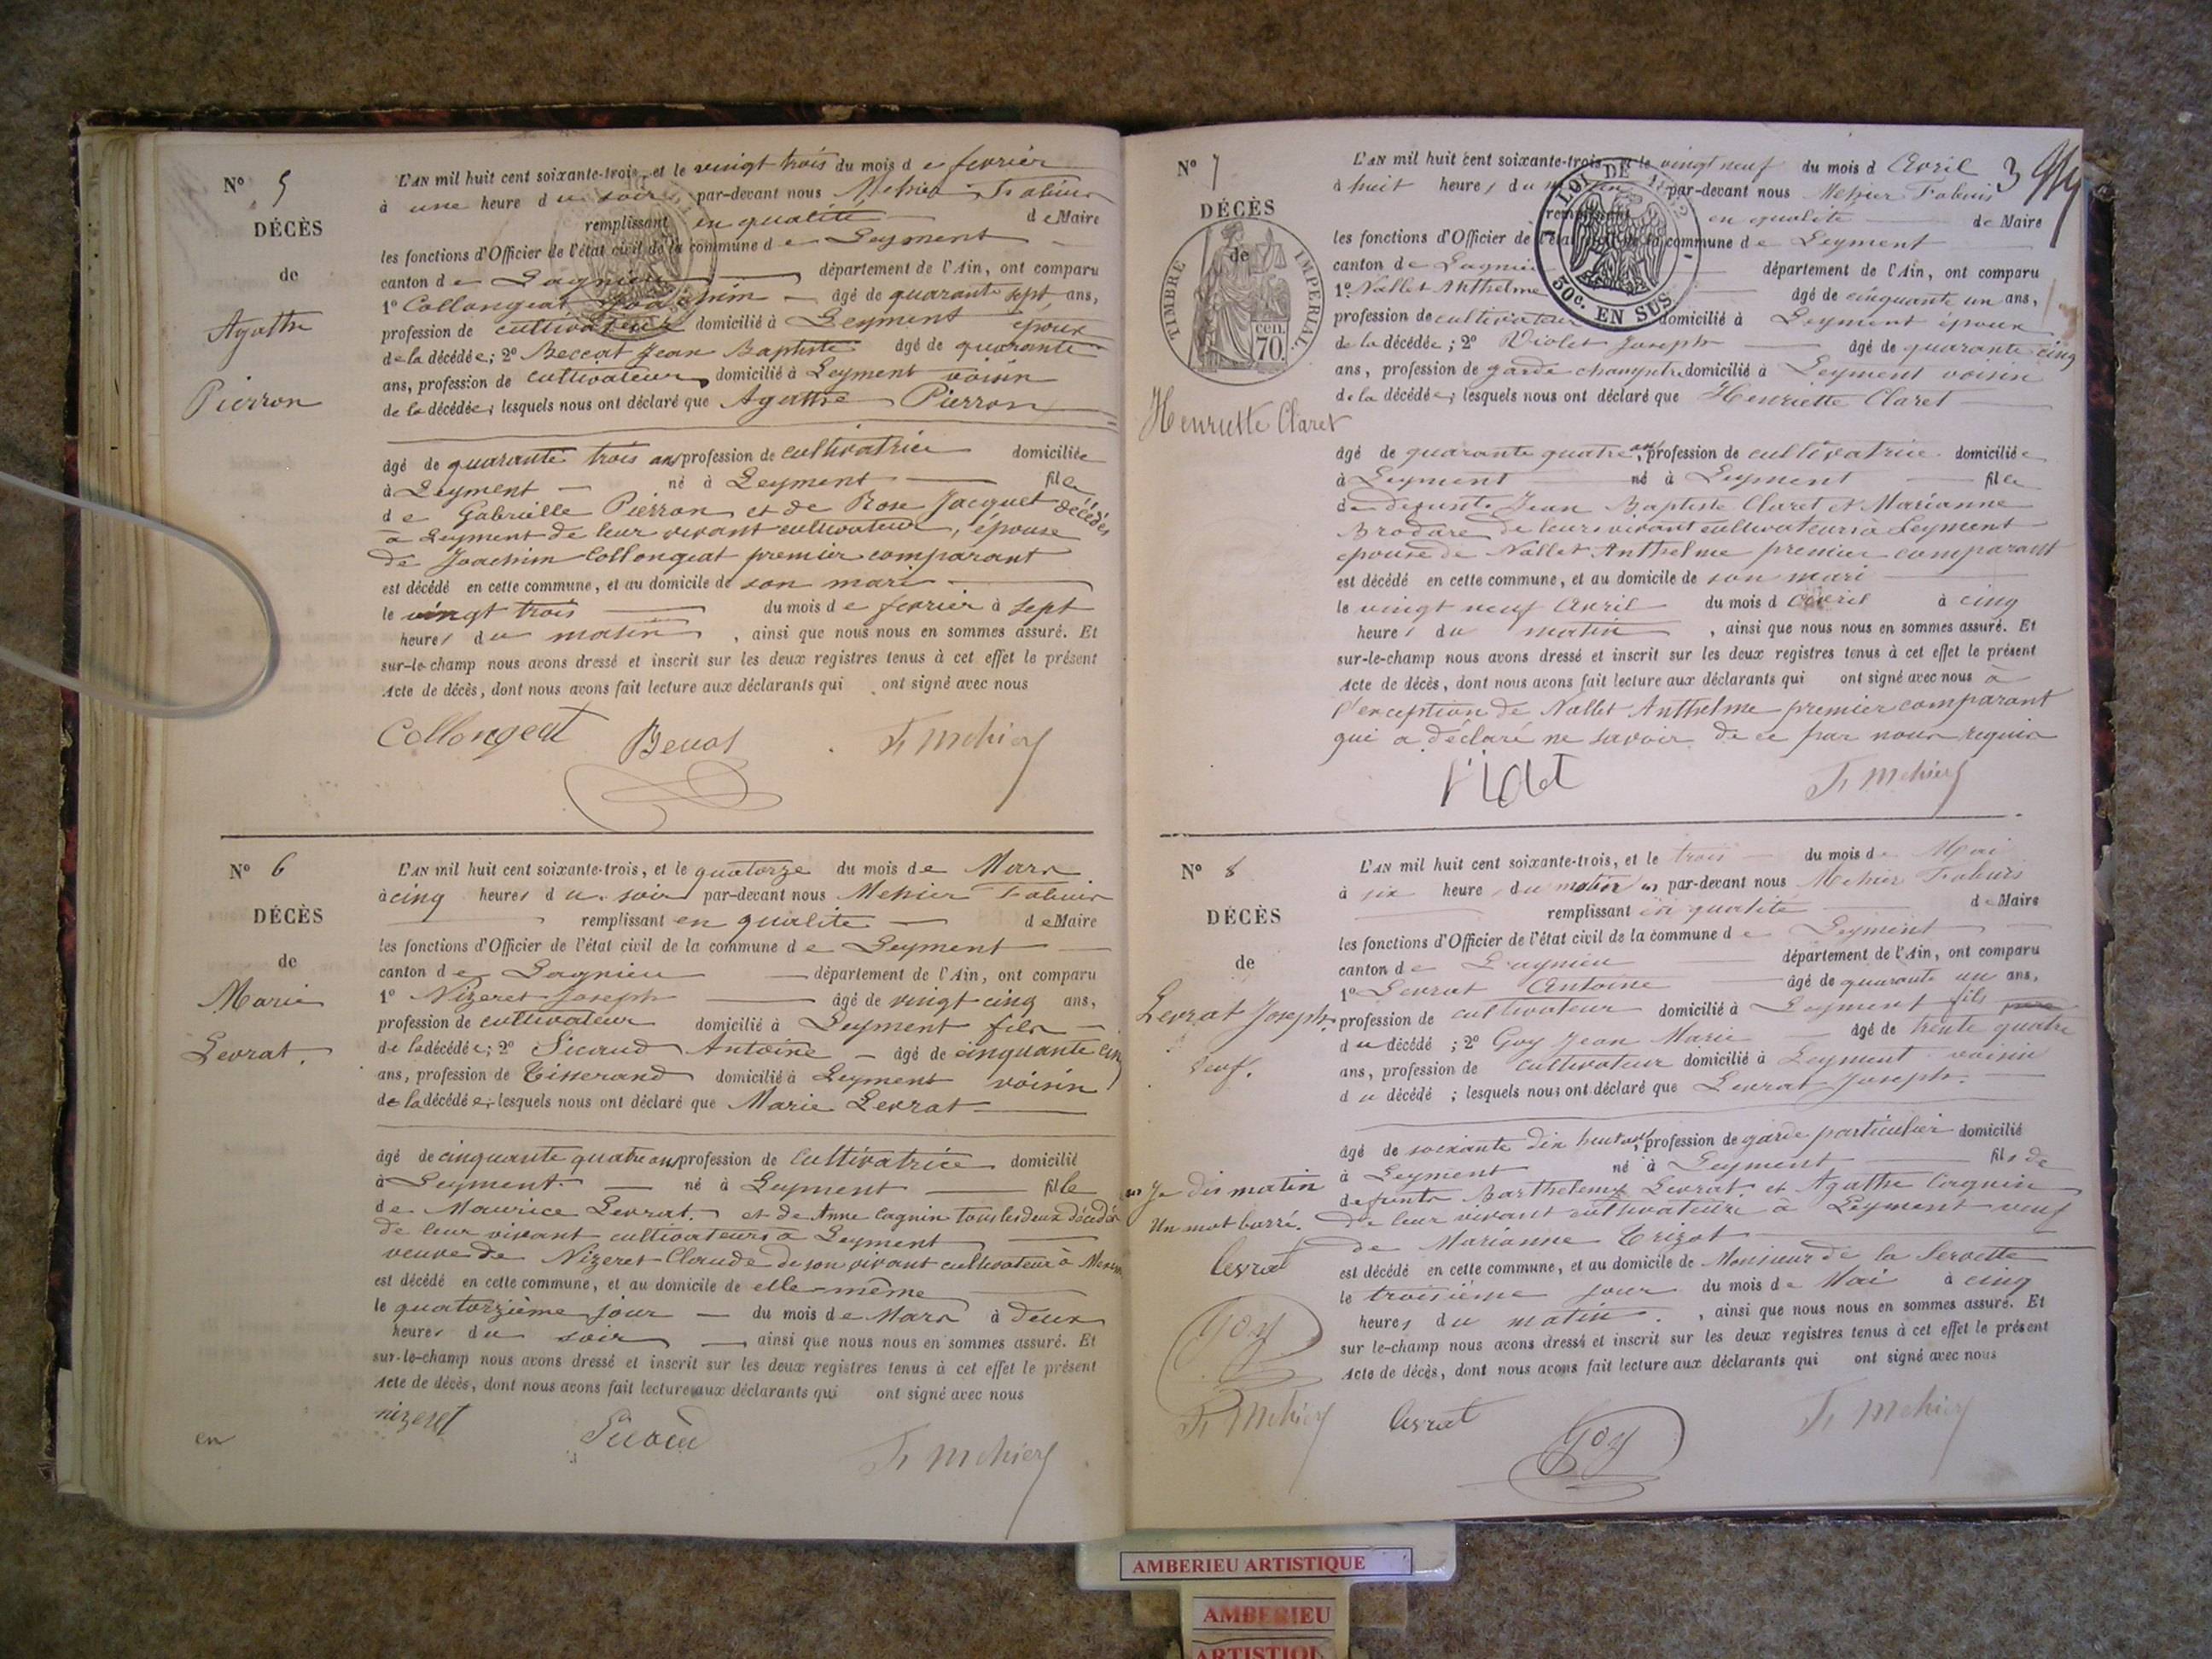 N° 5
DÉCÈS
de
Agathe
Pierron
L'AN mil huit cent soixante-trois, et le vingt trois du mois de fevrier
à une heure du soir, par-devant nous Mehier Fabius
remplissant en qualité de Maire
les fonctions d'Officier de l'état civil de la commune de Leyment
canton de Lagnieu département de l'Ain, ont comparu
1° Collongeat Joachim âgé de quarante sept ans,
profession de cultivateur domicilié à Leyment époux
de la décédée; 2° Beccat Jean Baptiste âgé de quarante
ans, profession de cultivateur domicilié à Leyment voisin
de la décédée; lesquels nous ont déclaré que Agathe Pierron
âgé de quarante trois ans profession de cultivatrice domiciliée
à Leyment né à Leyment fille
de Gabrielle Pierron et de Rose Jacquet décédés
à Leyment de leur vivant cultivateur, épouse
de Joachim Collongeat premier comparant
est décédé en cette commune, et au domicile de son mari
le vingt trois du mois de fevrier à sept
heures du matin, ainsi que nous nous en sommes assuré. Et
sur-le-champ nous avons dressé et inscrit sur les deux registres tenus à cet effet le présent
Acte de décès, dont nous avons fait lecture aux déclarants qui ont signé avec nous
Collongeat F. Mehier
N° 6
DÉCÈS
de
Marie
Levrat.
L'AN mil huit cent soixante-trois, et le quatorze du mois de Mars
à cinq heures du soir par-devant nous Mehier Fabius
remplissant en qualité de Maire
les fonctions d'Officier de l'état civil de la commune de Leyment
canton de Lagnieu département de l'Ain, ont comparu
1° Nizeret Joseph âgé de vingt cinq ans,
profession de cultivateur domicilié à Leyment fils
de la décédée; 2° Sicaud Antoine âgé de cinquante cinq
ans, profession de Tisserand domicilié à Leyment voisin
de la décédée; lesquels nous ont déclaré que Marie Levrat
âgé de cinquante quatre ans profession de Cultivatrice domicilié
à Leyment. né à Leyment fille
de Maurice Levrat. et de Anne Cagnin tous les deux décédés
de leur vivant cultivateurs à Leyment
veuve de Nizeret Claude de son vivant cultivateur à
est décédé en cette commune, et au domicile de elle-même
le quatorzième jour du mois de Mars à deux
heures du soir ainsi que nous nous en sommes assuré. Et
sur-le-champ nous avons dressé et inscrit sur les deux registres tenus à cet effet le présent
Acte de décès, dont nous avons fait lecture aux déclarants qui ont signé avec nous
nizeret F. Mehier
en
N° 7
DÉCÈS
de
TIMBRE IMPÉRIAL
70 cen.
Henriette Claret
LOI DE
50c. EN SUS
L'AN mil huit cent soixante-trois, et le vingt neuf du mois d Avril
à huit heures du par-devant nous Mehier Fabius
remplissant en qualité de Maire
les fonctions d'Officier de l'état civil de la commune de Leyment
canton de Lagnieu département de l'Ain, ont comparu
1° Nallet Anthelme âgé de cinquante un ans,
profession de cultivateur domicilié à Leyment époux
de la décédée; 2° Violet Joseph âgé de quarante cinq
ans, profession de garde champetre domicilié à Leyment voisin
de la décédée; lesquels nous ont déclaré que Henriette Claret
âgé de quarante quatre ans, profession de cultivatrice domiciliée
à Leyment né à Leyment fille
de defunts Jean Baptiste Claret et Marianne
Brodare de leur vivant cultivateurs à Leyment
épouse de Nallet Anthelme premier comparant
est décédé en cette commune, et au domicile de son mari
le vingt neuf Avril du mois d Avril à cinq
heures du matin, ainsi que nous nous en sommes assuré. Et
sur-le-champ nous avons dressé et inscrit sur les deux registres tenus à cet effet le présent
Acte de décès, dont nous avons fait lecture aux déclarants qui ont signé avec nous à
l'exception de Nallet Anthelme premier comparant
qui a déclaré ne savoir de ce par nous requis
F. Mehier
N° 8
DÉCÈS
de
Levrat Joseph.
veuf.
L'AN mil huit cent soixante-trois, et le trois du mois de Mai
à six heures du matin par-devant nous Mehier Fabius
remplissant en qualité de Maire
les fonctions d'Officier de l'état civil de la commune de Leyment
canton de Lagnieu département de l'Ain, ont comparu
1° Levrat Antoine âgé de quarante un ans,
profession de cultivateur domicilié à Leyment fils
du décédé; 2° Goy Jean Marie âgé de trente quatre
ans, profession de cultivateur domicilié à Leyment voisin
du décédé; lesquels nous ont déclaré que Levrat Joseph.
âgé de soixante dix huit ans, profession de garde particulier domicilié
à Leyment né à Leyment fils de
defunts Barthelemy Levrat. et Agathe Cagnin
de leur vivant cultivateurs à Leyment veuf
de Marianne Trizot
est décédé en cette commune, et au domicile de Monsieur de la Servette
le troisième jour du mois de Mai à cinq
heures du matin, ainsi que nous nous en sommes assuré. Et
sur le-champ nous avons dressé et inscrit sur les deux registres tenus à cet effet le présent
Acte de décès, dont nous avons fait lecture aux déclarants qui ont signé avec nous
Je dis matin
Un mot barré.
levrat
Goy
F. Mehier
levrat
Goy
F. Mehier
AMBERIEU ARTISTIQUE
AMBERIEU
ARTISTIQU